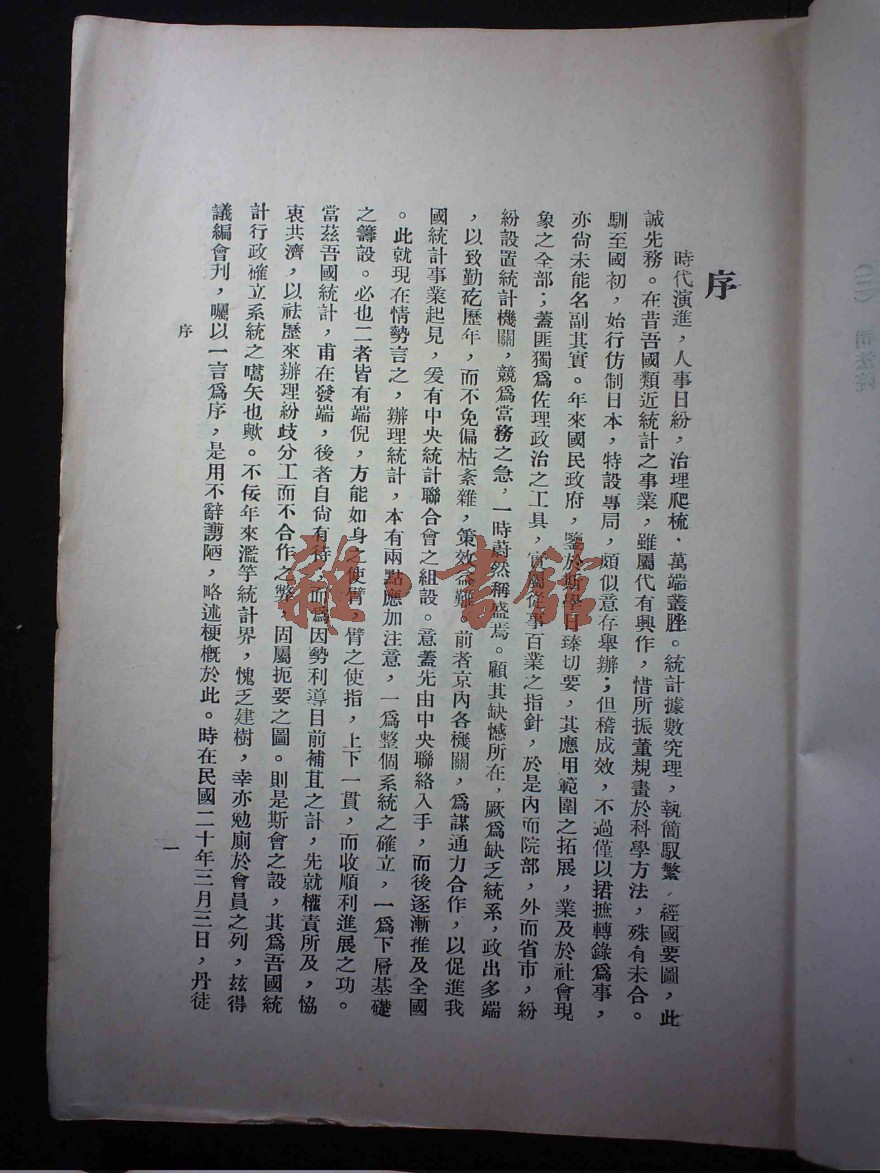 序
時代演進，人事日紛，治理爬梳，萬端叢脞。統計據數究理，執簡馭繁，經國要圖，此
誠先務。在昔吾國類近統計之事業，雖屬代有興作，惜所振董規畫於科學方法，殊有未合。
馴至國初，始行仿制日本，特設專局，頗似意存舉辦；但稽成效，不過僅以捃摭轉錄為事，
亦尙未能名副其實。年來國民政府，鑒於斯學日臻切要，其應用範圍之拓展，業及於社會現
象之全部；蓋匪獨為佐理政治之工具，實屬從事百業之指針，於是內而院部，外而省市，紛
紛設置統計機關，競為當務之急，一時蔚然稱盛焉。顧其缺憾所在，厥為缺乏統系，政出多端
，以致勤矻歷年，而不免偏枯紊雜，策效益難。前者京內各機關，為謀通力合作，以促進我
國統計事業起見，爰有中央統計聯合會之組設。意蓋先由中央聯絡入手，而後逐漸推及全國
。此就現在情勢言之，辦理統計，本有兩點應加注意，一為整個系統之確立，一為下層基礎
之籌設。必也二者皆有端倪，方能如身之使臂，臂之使指，上下一貫，而收順利進展之功。
當茲吾國統計，甫在發端，後者自尙有待，而為因勢利導目前補苴之計，先就權責所及，恊
衷共濟，以祛歷來辦理紛歧分工而不合作之弊，固屬扼要之圖。則是斯會之設，其為吾國統
計行政確立系統之嚆矢也歟。不佞年來濫竽統計界，愧乏建樹，幸亦勉廁於會員之列，玆得
議編會刋，囑以一言為序，是用不辭謭陋，略述梗概於此。時在民國二十年三月三日，丹徒
序
一
雜·書館
（三）　司法院